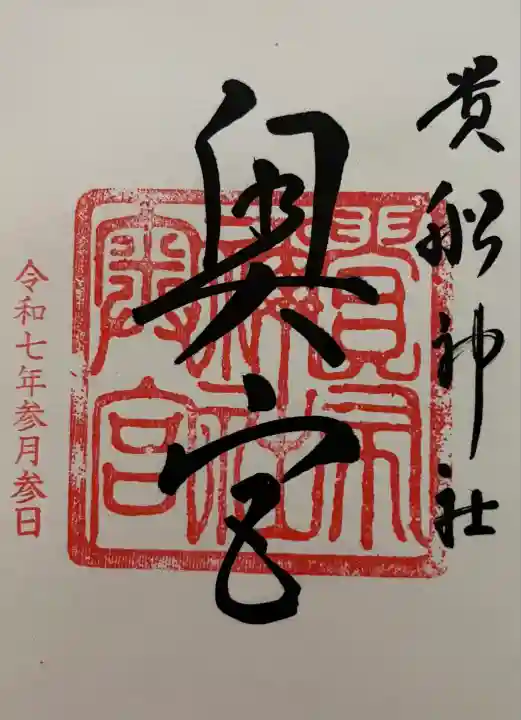 貴船神社
奥宮
貴布
禰社
奥宮
令和七年参月参日